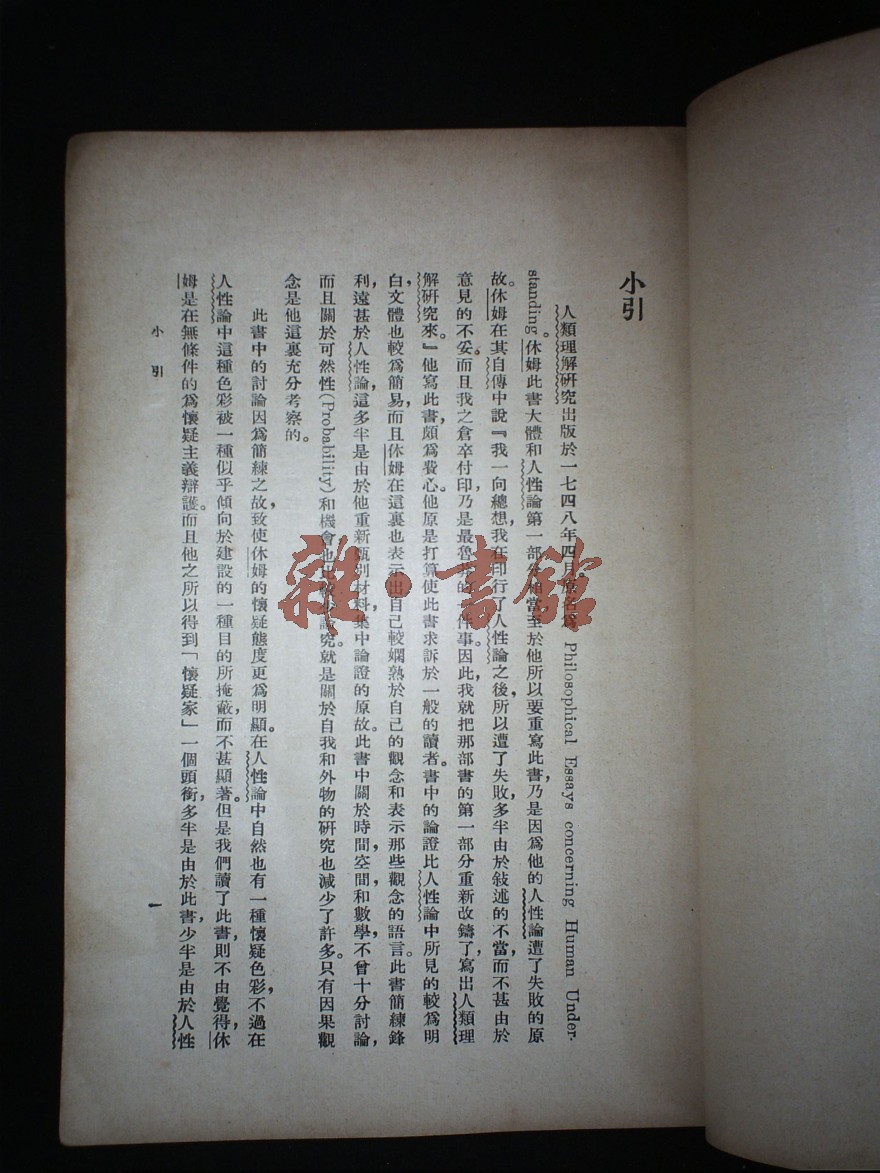 小引
人類理解研究出版於一七四八年四月。原名爲 Philosophical Essays concerning Human Under-
standing。休姆此書大體和人性論第一部分相當至於他所以要重寫此書，乃是因爲他的人性論遭了失敗的原
故。休姆在其自傳中說『我一向總想，我在印行了人性論之後，所以遭了失敗，多半由於敍述的不當，而不甚由於
意見的不妥。而且我之倉卒付印，乃是最魯莽的一件事。因此，我就把那部書的第一部分重新改鑄了，寫出人類理
解研究來。』他寫此書，頗爲費心。他原是打算使此書求訴於一般的讀者。書中的論證比人性論中所見的較爲明
白，文體也較爲簡易，而且休姆在這裏也表示出自己較嫻熟於自己的觀念和表示那些觀念的語言。此書簡練鋒
利，遠甚於人性論，這多半是由於他重新甄別材料，集中論證的原故。此書中關於時間，空間，和數學，不曾十分討論，
而且關於可然性(Probability)和機會也比較少論究。就是關於自我和外物的研究也減少了許多。只有因果觀
念是他這裏充分考察的。
此書中的討論因爲簡練之故，致使休姆的懷疑態度更爲明顯。在人性論中自然也有一種懷疑色彩，不過在
人性論中這種色彩被一種似乎傾向於建設的一種目的所掩蔽，而不甚顯著。但是我們讀了此書，則不由覺得，休
姆是在無條件的爲懷疑主義辯護。而且他之所以得到「懷疑家」一個頭銜，多半是由於此書，少半是由於人性
小引
一
雜·書館